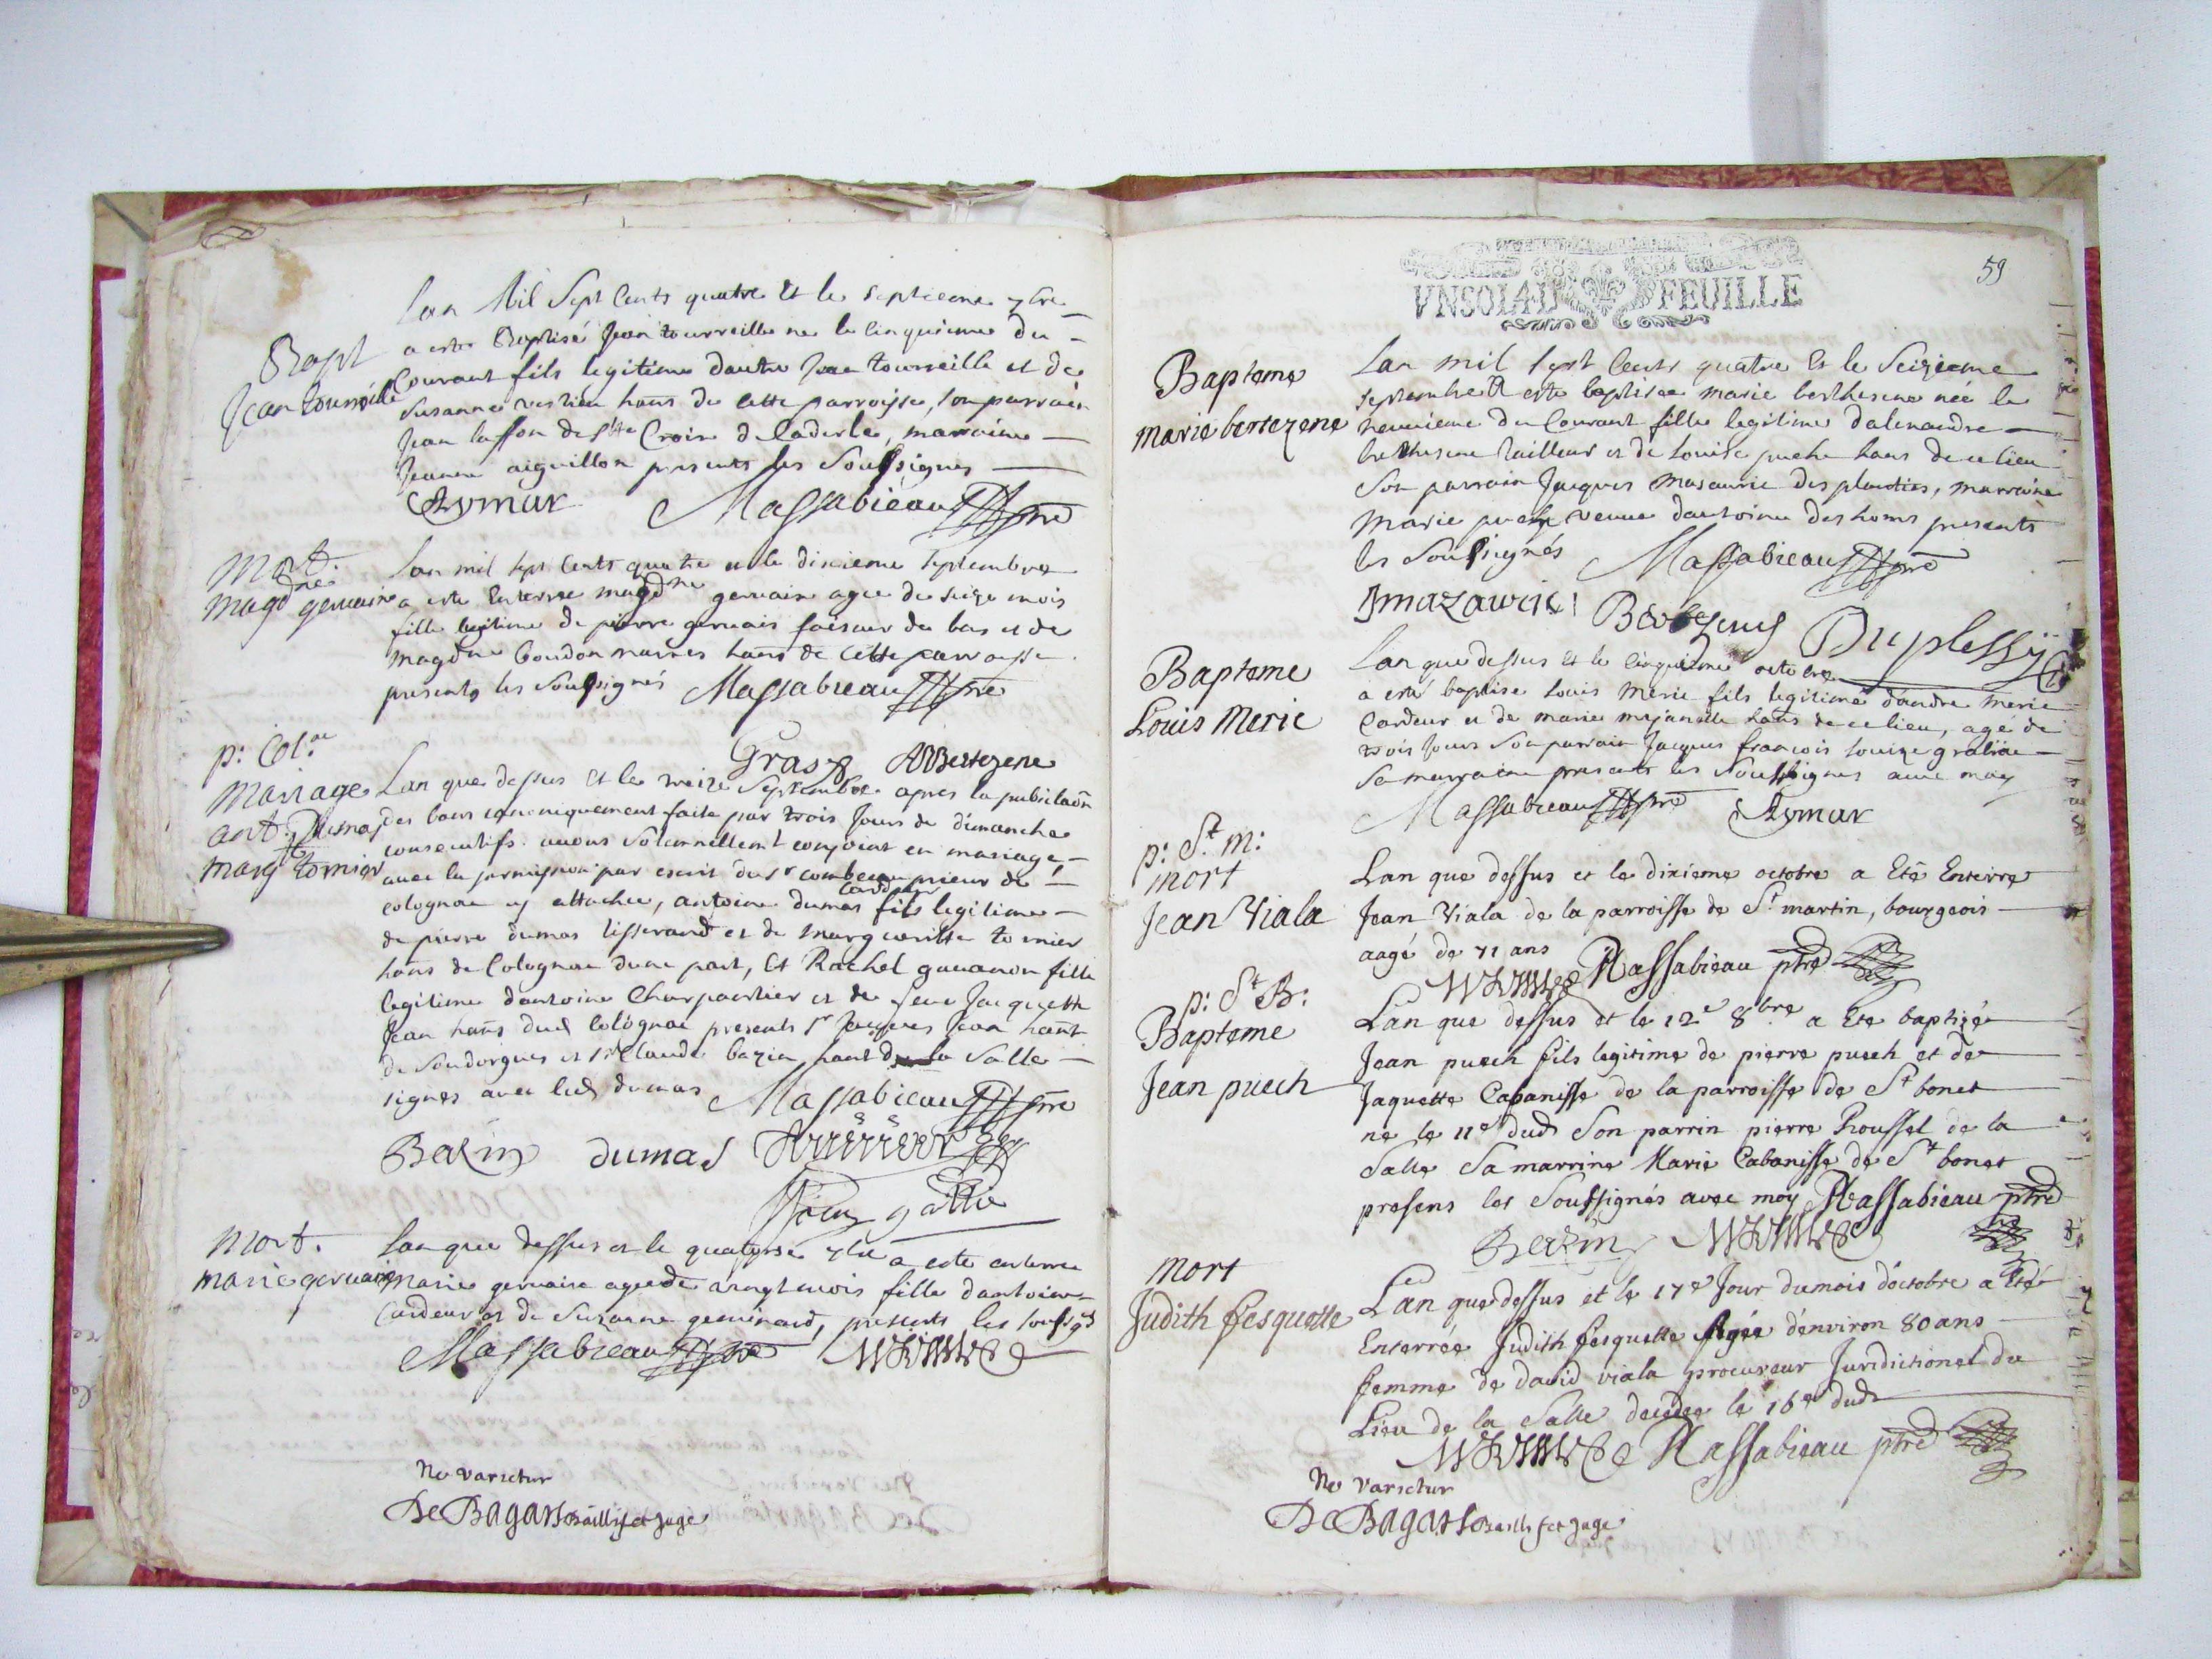 Lan Mil Sept Cents quatre Et le Septieme 7bre
Bapt
Jean tourreille
a este Baptisé Jean tourreille né le Cinquieme du
Courant fils legitime dautre Jean tourreille et de
Susanne hans de cette parroisse, son parrain
Jean laffon de Ste Croix de Caderle, marraine
Jeanne aiguillon presents les Soussignes
Aymar Massabieau ptre
Mort.
Magdne gervaise
Lan mil sept Cents quatre et le dixieme Septembre
a esté Enterree magdne gervaise agée de seize mois
fille legitime de pierre gervais faiseur de bas et de
magdne boudon mariés hans de Cette parroisse
presents les soussignés Massabieau ptre
p: Col.ac
Gras ABertezene
Mariage
ant. Dumas
Margte tornier
Lan que dessus Et le treize Septembre apres la publicaon
des bans canoniquement faite par trois Jours de dimanche
consecutifs. avons Solannellemt conjoint en mariage,
avec la permission par escrit du sr combecau prieur de
colognac cy attachee, antoine dumas cardeur fils legitime
de pierre dumas tisserand et de marguerite tornier
hans de Colognac dune part, Et Rachel gavanon fille
legitime dantoine Charpantier et de feue Jacquette
Jean hans dud Colognac presents sr Jacques Jean hant
de Soudorgues et sr Claude bazin hant de la Salle
signes avec led dumas Massabieau ptre
Bazin dumas
Mort.
marie gervaise
Lan que dessus et le quatorse 7bre a este enterree
marie gervaise agee de vingt mois fille dantoine
Cardeur et de Suzanne geminard, presents les soussigs
Massabieau ptre
Ne varietur
De Bagars bailly et juge
59
VN SOL 4 D FEUILLE
Bapteme
Marie bertezene
Lan mil sept Cents quatre Et le Seizieme
Septembre A esté baptisee marie berthezene née le
neuvieme du Courant fille legitime dalexandre
berthezene tailleur et de Louise puech hans de ce lieu
Son parrain Jacques Masauric des plantiers, marraine
Marie puech veuve dantoine deshoms presents
les Soussignés Massabieau ptre
J mazauric Bertezene Duplessy
Bapteme
Louis Meric
Lan que dessus Et le Cinquieme octobre
a esté baptise Louis Meric fils legitime dandre meric
Cardeur et de marie mejanelle hans de ce lieu, agé de
trois Jours Son parrain Jacques francois
Sa marraine presents les Soussignes avec moy
Massabieau ptre Aymar
p: St. m:
mort
Jean Viala
Lan que dessus et le dixieme octobre a Eté Enterre
Jean Viala de la parroisse de St martin, bourgeois
aagé de 71 ans
Massabieau ptre
p: St B:
Bapteme
Jean puech
Lan que dessus et le 12e 8bre a Ete baptizé
Jean puech fils legitime de pierre puech et de
Jaquette Cabanisse de la parroisse de St bonet
né le 11e dud Son parrin pierre Roussel de la
Salle Sa marrine Marie Cabanisse de St bonet
presens les Soussignés avec moy Massabieau ptre
Bazin
mort
Judith fesquette
Lan que dessus et le 17e Jour du mois d'octobre a Eté
Enterrée Judith fesquette Agée d'environ 80 ans
femme de david viala procureur Juridictionel du
Lieu de la Salle decedee le 16e dud
Massabieau ptre
Ne varietur
De Bagars bailly et juge